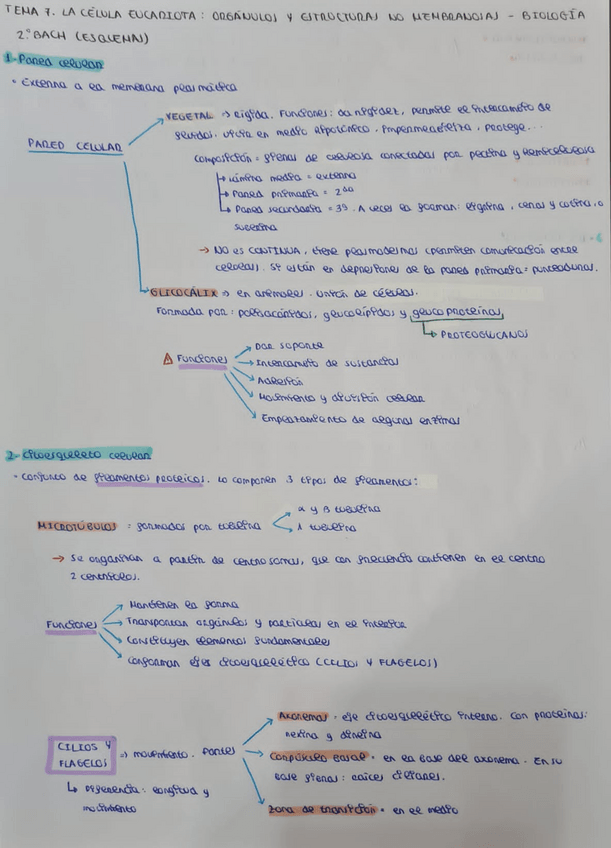 TEMA 7. LA CÉLULA EUCARIOTA: ORGÁNULOS Y ESTRUCTURAS NO MEMBRANOSAS - BIOLOGÍA
2º BACH (ESQUEMAS)
1- Pared celular
• Externa a la membrana plasmática
VEGETAL → rígida. Funciones: da rigidez, permite el intercambio de
PARED CELULAR
fluidos, vivir en medio hipotónico, impermeabiliza, protege...
Composición = fibras de celulosa conectadas por pectina y hemicelulosa
→ Lámina media = externa
→ Pared primaria = 2ª
→ Pared secundaria = 3ª. A veces la forman: lignina, ceras y cutina, o
suberina
→ NO es CONTINUA, tiene plasmodesmos (permiten comunicación entre
células). Si están en depresiones de la pared primaria = punteaduras.
GLICOCÁLIX → en animales. Unión de células.
Formada por: polisacáridos, glucolípidos y glucoproteínas
→ PROTEOGLUCANOS
Funciones
Dar soporte
Intercambio de sustancias
Adhesión
Movimiento y división celular
Empaquetamiento de algunas enzimas
2- Citoesqueleto celular
• Conjunto de filamentos proteicos. Lo componen 3 tipos de filamentos:
MICROTÚBULOS = formados por tubulina
α y β tubulina
γ tubulina
→ Se organizan a partir de centrosomas, que con frecuencia contienen en el centro
2 centriolos.
Funciones
Mantienen la forma
Transportan orgánulos y partículas en el interior
Constituyen elementos fundamentales
Conforman ejes citoesquelético (CILIOS Y FLAGELOS)
CILIOS Y FLAGELOS → movimiento. Partes
↳ Diferencia: longitud y
movimiento
Axonema • eje citoesquelético interno. Con proteínas:
nexina y dineína
Corpúsculo basal • en la base del axonema. En su
base fibras: raíces ciliares.
Zona de transición • en el medio